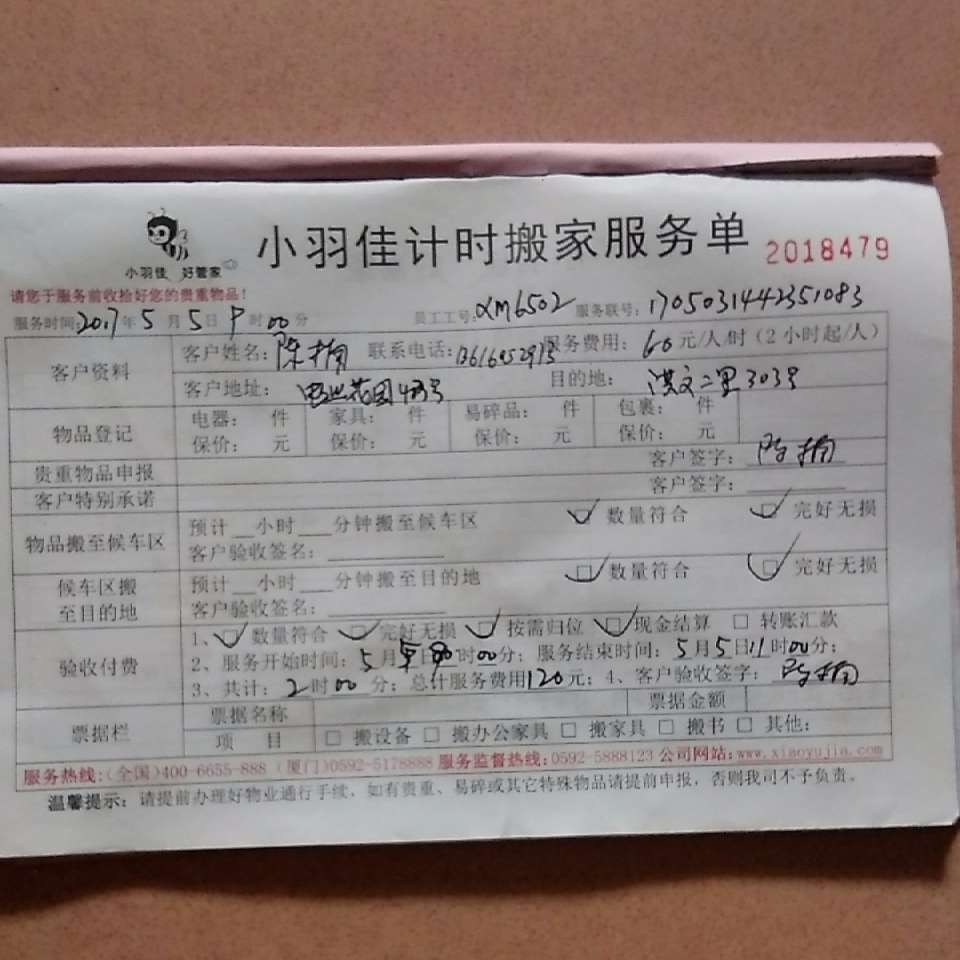 小羽佳 好管家
小羽佳计时搬家服务单 2018479
请您于服务前收拾好您的贵重物品!
服务时间:2017年5月5日9时00分 员工工号:XM6502 服务联号:1705031442351083
客户资料 客户姓名:陈楠 联系电话: 服务费用:60元/人/时(2小时起/人)
客户地址: 花园 号 目的地:洪文二里303号
物品登记 电器: 件 家具: 件 易碎品: 件 包裹: 件
保价: 元 保价: 元 保价: 元 保价: 元
贵重物品申报 客户签字:陈楠
客户特别承诺 客户签字:
物品搬至候车区 预计__小时___分钟搬至候车区 ☑数量符合 ☑完好无损
客户验收签名:
候车区搬至目的地 预计__小时___分钟搬至目的地 ☑数量符合 ☑完好无损
客户验收签名:
验收付费 1、☑数量符合 ☑完好无损 ☑按需归位 ☑现金结算 □转账汇款
2、服务开始时间:5月5日9时00分;服务结束时间:5月5日11时00分;
3、共计:2时00分;总计服务费用120元;4、客户验收签字:陈楠
票据栏 票据名称 票据金额
项 目 □搬设备 □搬办公家具 □搬家具 □搬书 □其他:
服务热线:(全国)400-6655-888 (厦门)0592-5178888 服务监督热线:0592-5888123 公司网站:www.xiaoyujia.com
温馨提示:请提前办理好物业通行手续,如有贵重、易碎或其它特殊物品请提前申报,否则我司不予负责。